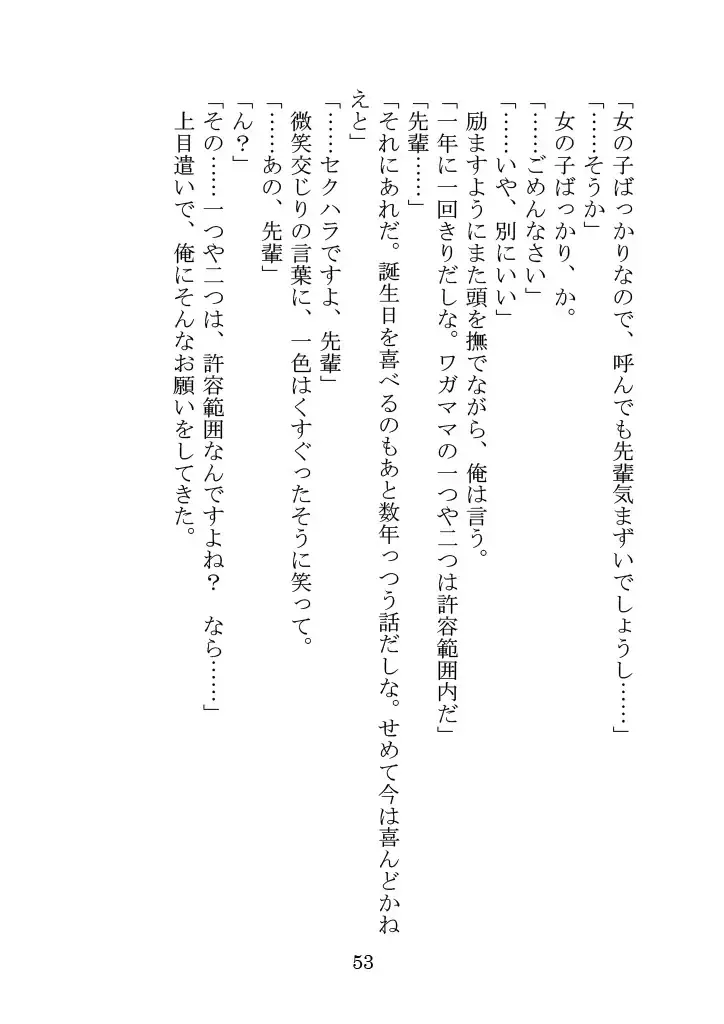 「女の子ばっかりなので、呼んでも先輩気まずいでしょうし……」
「……そうか」
　女の子ばっかり、か。
「……ごめんなさい」
「……いや、別にいい」
　励ますようにまた頭を撫でながら、俺は言う。
「一年に一回きりだしな。ワガママの一つや二つは許容範囲内だ」
「先輩……」
「それにあれだ。誕生日を喜べるのもあと数年っつう話だしな。せめて今は喜んどかね
えと」
「……セクハラですよ、先輩」
　微笑交じりの言葉に、一色はくすぐったそうに笑って。
「……あの、先輩」
「ん？」
「その……一つや二つは、許容範囲なんですよね？　なら……」
　上目遣いで、俺にそんなお願いをしてきた。
53